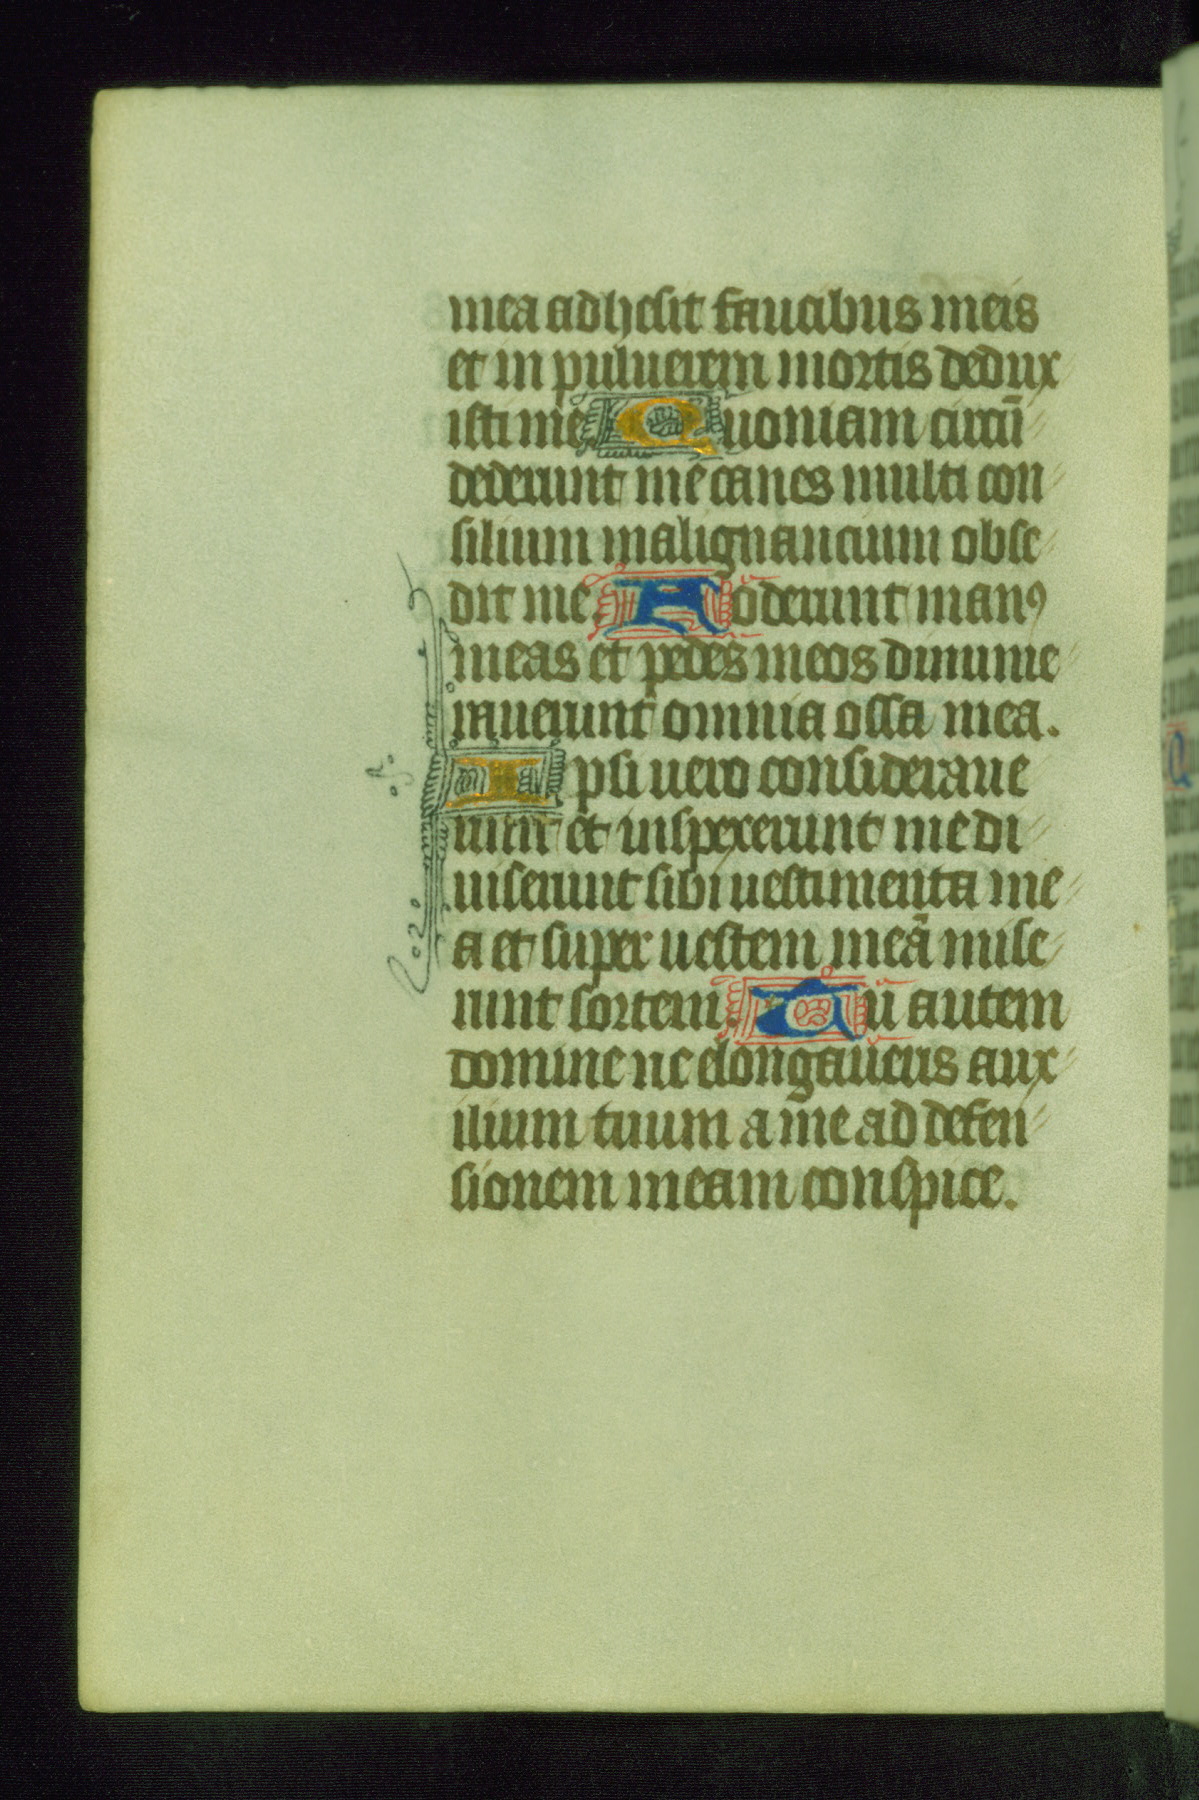 mea adhesit faucibus meis
et in puluerem mortis dedux
isti me Quoniam circū
dederunt me canes multi con
silium malignancium obse
dit me. Foderunt manꝰ
meas et pedes meos dinume
rauerunt omnia ossa mea.
Ipsi uero consideraue
runt et inspexerunt me di
uiserunt sibi uestimenta me
a et super uestem meā mise
runt sortem. Tu autem
domine ne elongaueris aux
ilium tuum a me ad defen
sionem meam conspice.